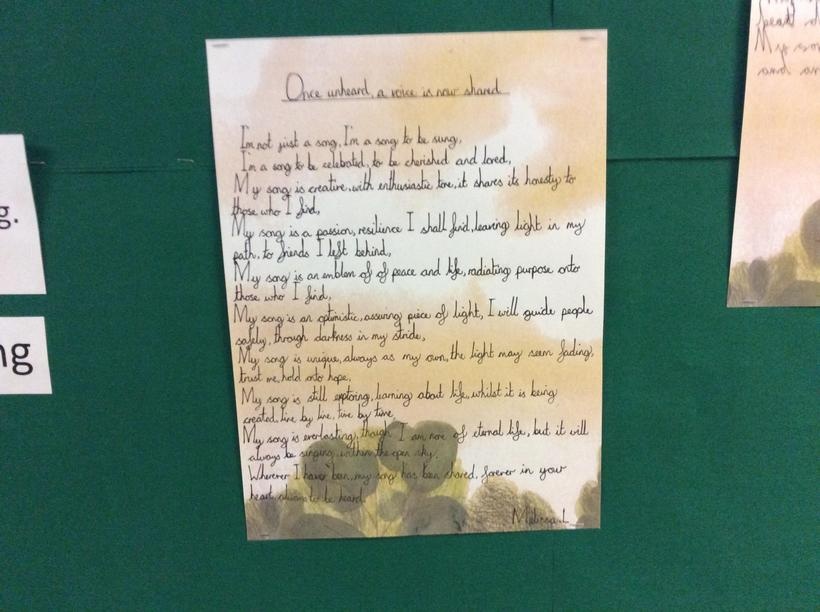 Once unheard, a voice is now shared
I'm not just a song, I'm a song to be sung,
I'm a song to be celebrated, to be cherished and loved,
My song is creative, with enthusiastic tone, it shares its honesty to
those who I find,
My song is a passion, resilience I shall find, leaving light in my
path, to friends I left behind,
My song is an emblem of of peace and life, radiating purpose onto
those who I find,
My song is an optimistic, assuring piece of light, I will guide people
safely, through darkness in my stride,
My song is unique, always as my own, the light may seem fading,
trust me, hold onto hope,
My song is still exploring, learning about life, whilst it is being
created, line by line, time by time
My song is everlasting, though I am none of eternal life, but it will
always be singing, within the open sky,
Wherever I have been, my song has been shared, forever in your
heart, always to be heard
Melissa.L
g.
ng
My
and